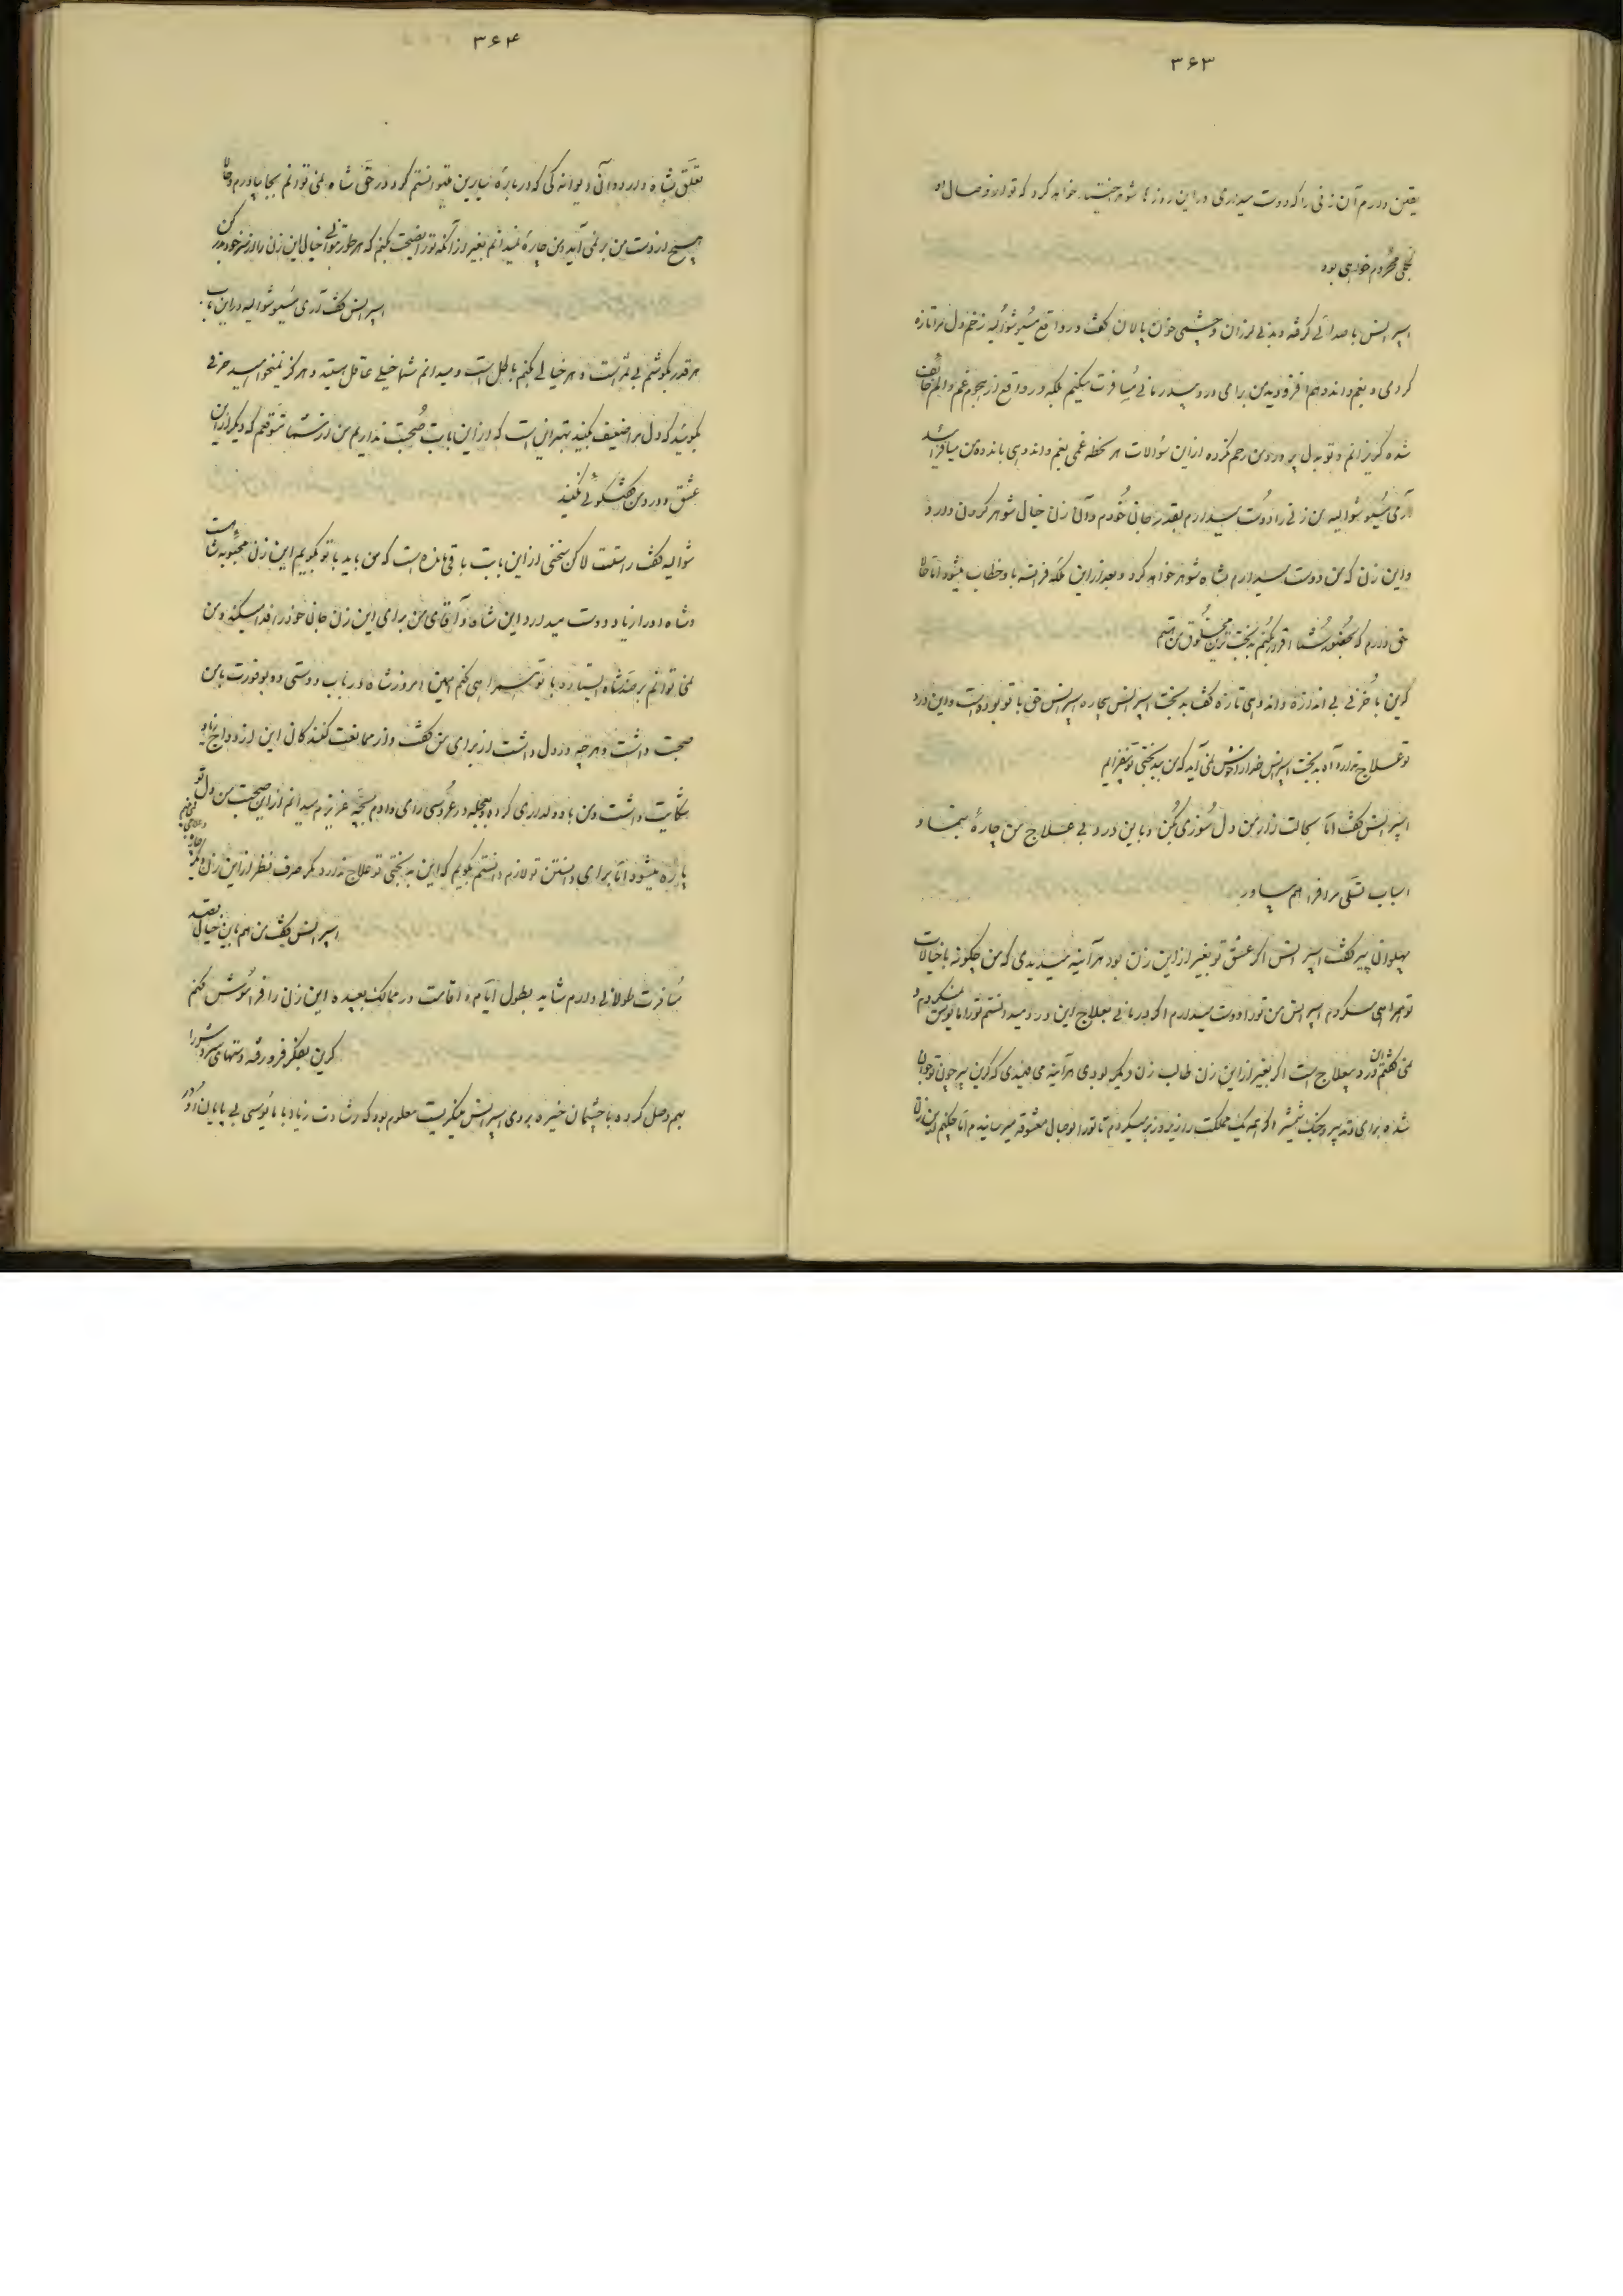 ۳۶۳
یقین دارم آن زنی را که دوست میداری در این روزها شوهر خواهد کرد که تو از وصال او
بکلی محروم خواهی بود
اسپرانس با صدائی گرفته و بدنی لرزان و چشمی خون پالان گفت در واقع مسیو شوالیه زخم دل مرا تازه
کردی و بغم و اندوهم افزودی من برای درد بیدرمانی مسافرت میکنم بلکه در واقع از هجوم غم و الم
شده گریزانم و تو بدل پر درد من رحم نکرده از این سئوالات هر لحظه غمی بغم و اندوهی باندوه من میافزائید
آری مسیو شوالیه من زنی را دوست میدارم بقدر جان خودم و آن زن خیال شوهر کردن دارد
و این زن که من دوست میدارم بشاه شوهر خواهد کرد و بعد از این ملکه فرانسه باو خطاب میشود اما حالا
حق دارم که بحضور شما اقرار بکنم بدبخت ترین مخلوق من هستم
کرین با حزنی بی اندازه و اندوهی تازه گفت بدبخت اسپرانس بیچاره اسپرانس حق با تو بوده است و این درد
تو علاج ندارد آه بدبخت اسپرانس خدا را خوش نمی آید که من به بدبختی تو بیفزایم
اسپرانس گفت اما بحالت زار من دل سوزی بکن و باین درد بی علاج من چارهٔ بنما و
اسباب تسلی مرا فراهم بیاور
پهلوان پیر گفت اسپرانس اگر عشق تو بغیر از این زن بود هر آینه میدیدی که من چگونه با خیالات
تو همراهی میکردم اسپرانس من تو را دوست میدارم اگر درمانی بعلاج این درد میدانستم تو را مایوس نمیکردم و
نمی گفتم این درد بیعلاج است اگر بغیر از این زن طالب زن دیگر بودی هر آینه می دیدی که کرین پیر چون جوان
شده برای تدبیر و جنگ شمشیر اگر همه یک مملکت را زیر و زبر میکردم تا تو را بوصال معشوقه میرساندم اما چکنم این زن
۳۶۴
تعلق بشاه دارد و آن دیوانه گی که درباره سایرین میتوانستم کرد در حق شاه نمی توانم بجا بیاورم و حالا
هیچ از دست من بر نمی آید و من چارهٔ نمیدانم بغیر از آنکه تو را نصیحت بکنم که هر طور میتوانی خیال این زن را از سر خود بدر کن
اسپرانس گفت آری مسیو شوالیه در این باب
هر قدر بکوشم بی ثمر است و هر خیالی بکنم باطل است و میدانم شما خیلی عاقل هستید و هرگز نمیخواهید حرفی
بگوئید که دل مرا ضعیف بکنید بهتر آن است که در این بابت صحبت نداریم من از شما متوقعم که دیگر از این
عشق و درد من گفتگوئی نکنید
شوالیه گفت راست است لاکن سخنی از این بابت باقی مانده است که من باید با تو بگویم این زن محبوبه شاه است
و شاه او را زیاد دوست میدارد این شاه و آقای من برای این زن جان خود را فدا میکند و من
نمی توانم بر ضد شاه ایستاده با تو همراهی کنم همین امروز شاه در باب دوستی و با من
صحبت داشت و هر چه در دل داشت از برای من گفت و از ممانعت کنندگان این ازدواج زیاد
شکایت داشت و من باو دلداری کرده بعجله در عروسی رای دادم بچه عزیزم میدانم از این صحبت من دل تو
پاره میشود اما برای دانستن تو لازم دانستم بگویم که این بدبختی تو علاج ندارد مگر صرف نظر از این زن
اسپرانس گفت من هم باین خیال قصد
مسافرت طولانی دارم شاید بطول ایام و اقامت در ممالک بعیده این زن را فراموش کنم
کرین بفکر فرو رفته دستهای خود را
بهم وصل کرده با چشمان خیره بروی اسپرانس مینگریست معلوم بود که رشادت زیاد با مایوسی بی پایان